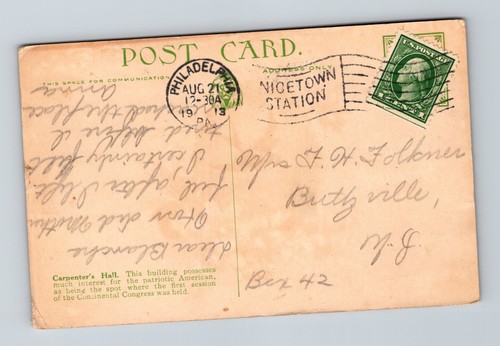 POST CARD.
THIS SPACE FOR COMMUNICATION
ADDRESS ONLY
PHILADELPHIA
AUG 21
12-30A
1913
PA.
NICETOWN
STATION
U.S. POSTAGE
Dear Blanche
How did Mother
feel, after I left
I certainly felt
tired before I
reached the place
Anna
F. H. Folkner
Buttzville,
N. J.
Box 42
Carpenter's Hall. This building possesses
much interest for the patriotic American,
as being the spot where the first session
of the Continental Congress was held.